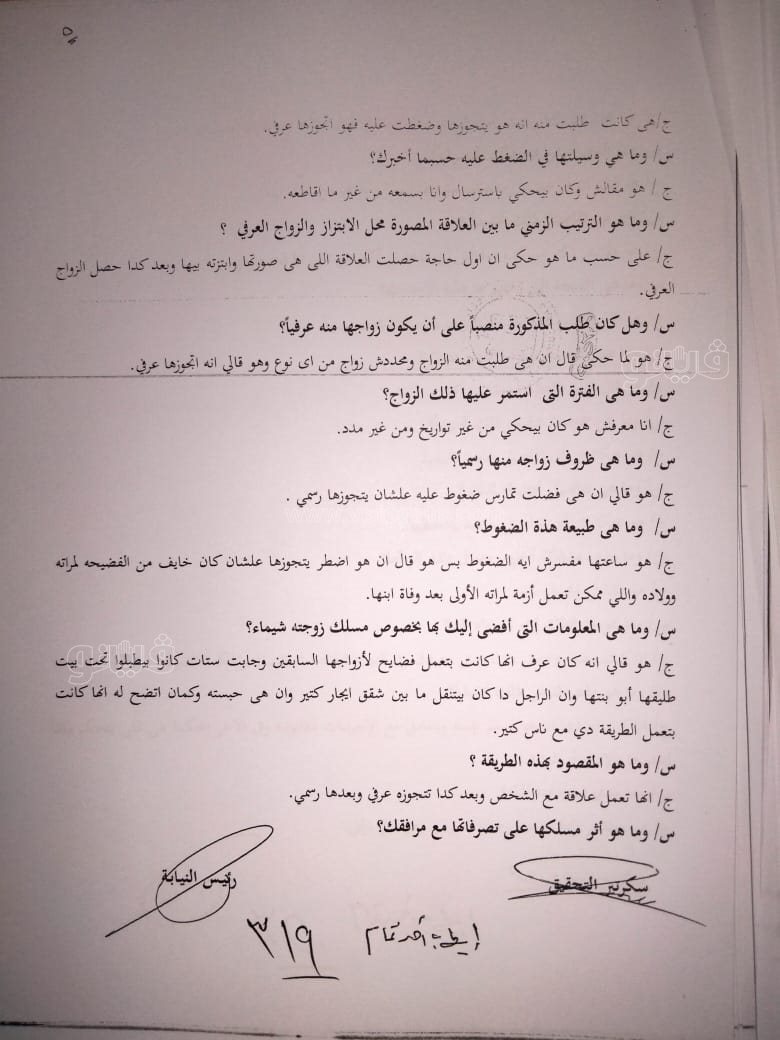 ج/هى كانت طلبت منه انه هو يتجوزها وضغطت عليه فهو اتجوزها عرفي.
س/ وما هي وسيلتها في الضغط عليه حسبما أخبرك؟
ج / هو مقالش وكان بيحكي باسترسال وانا بسمعه من غير ما اقاطعه.
س/ وما هو الترتيب الزمني ما بين العلاقة المصورة محل الابتزاز والزواج العرفي ؟
ج/ على حسب ما هو حكى ان اول حاجة حصلت العلاقة اللى هى صورتها وابتزته بيها وبعد كدا حصل الزواج
العرفي.
س/ وهل كان طلب المذكورة منصباً على أن يكون زواجها منه عرفياً؟
ج/ هو لما حكى قال ان هى طلبت منه الزواج ومحددش زواج من اى نوع وهو قالي انه اتجوزها عرفي.
فيتو
س/ وما هى الفترة التى استمر عليها ذلك الزواج؟
ج/ انا معرفش هو كان بيحكي من غير تواريخ ومن غير مدد.
س/ وما هى ظروف زواجه منها رسمياً؟
ج/ هو قالي ان هى فضلت تمارس ضغوط عليه علشان يتجوزها رسمي .
س/ وما هى طبيعة هذة الضغوط؟
ج/ هو ساعتها مفسرش ايه الضغوط بس هو قال ان هو اضطر يتجوزها علشان كان خايف من الفضيحه لمراته
وولاده واللي ممكن تعمل أزمة لمراته الأولى بعد وفاة ابنها.
س/ وما هى المعلومات التى أفضى إليك بها بخصوص مسلك زوجته شيماء؟
فيتو
ج/ هو قالي انه كان عرف انها كانت بتعمل فضايح لأزواجها السابقين وجابت ستات كانوا بيطبلوا تحت بيت
طليقها أبو بنتها وان الراجل دا كان بيتنقل ما بين شقق ايجار كتير وان هى حبسته وكمان اتضح له انها كانت
بتعمل الطريقة دي مع ناس كتير.
س/ وما هو المقصود بهذه الطريقة ؟
ج/ انها تعمل علاقة مع الشخص وبعد كدا تتجوزه عرفي وبعدها رسمي.
س/ وما هو أثر مسلكها على تصرفاتها مع مرافقك؟
سكرتير التحقيق
رئيس النيابة